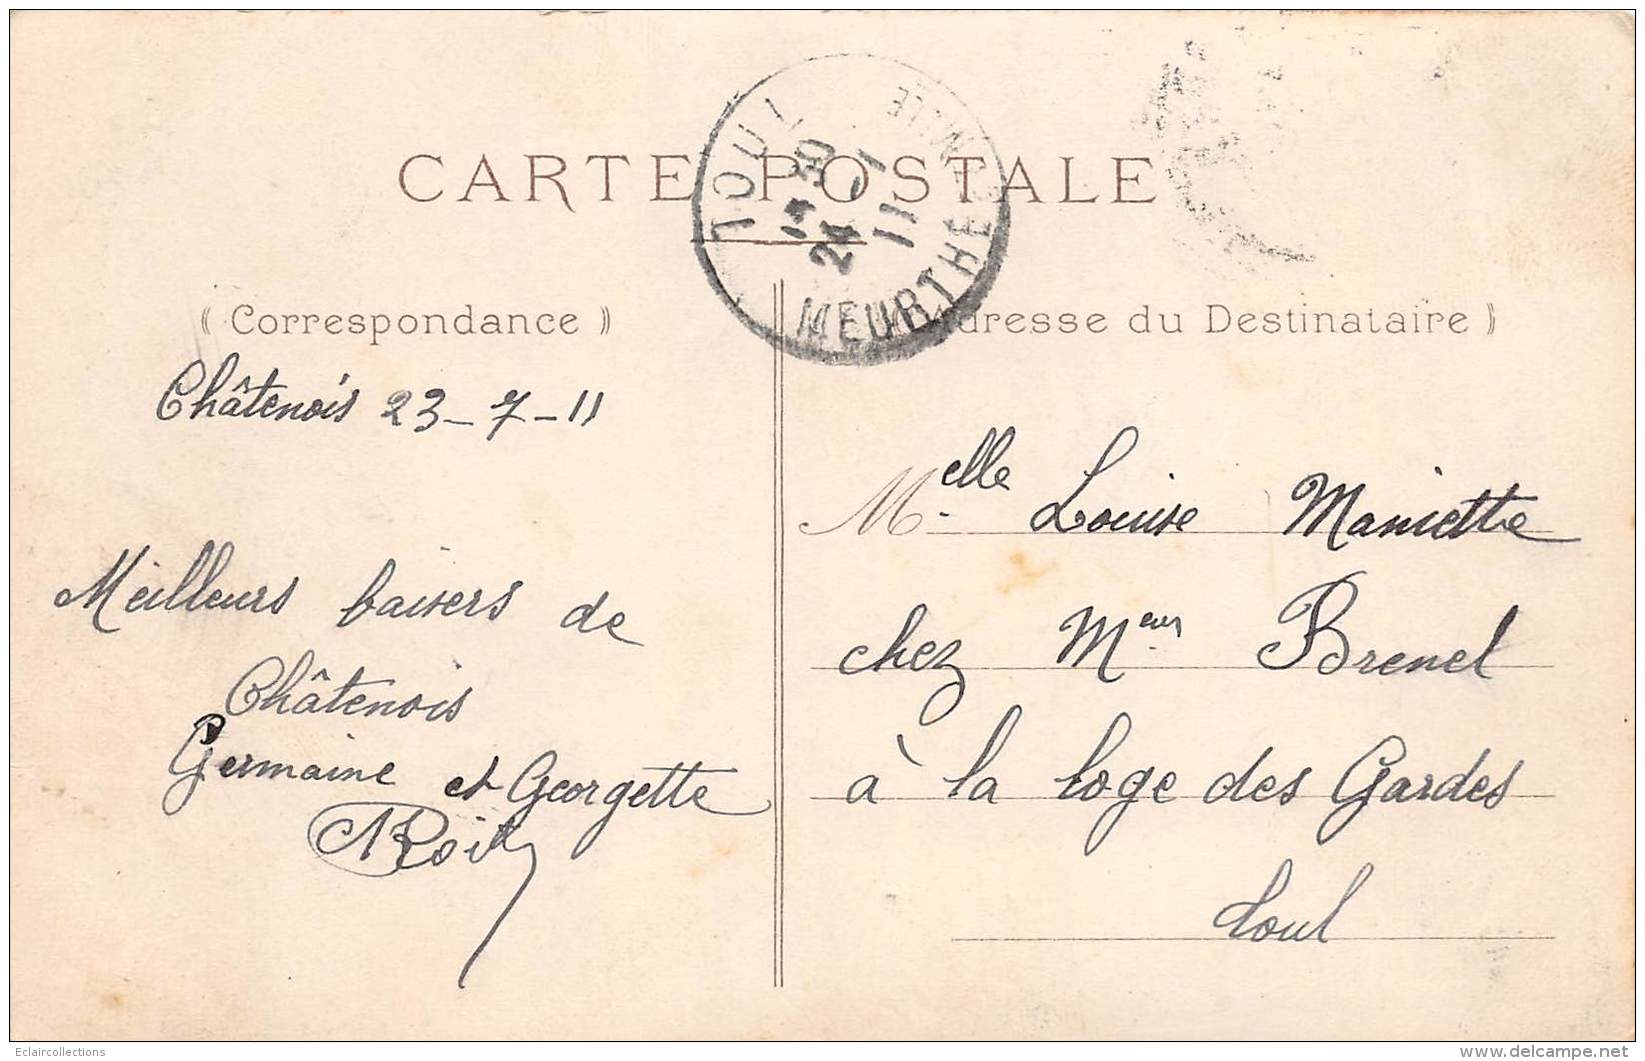 CARTE POSTALE
TOUL
MEURTHE
24
11
⸨ Correspondance ⸩
Châtenois 23-7-11
Meilleurs baisers de
Châtenois
Germaine et Georgette
Adresse du Destinataire ⸩
Melle Louise Maniette
chez Meur Brenel
à la loge des Gardes
Toul
Eclaircollections
www.delcampe.net